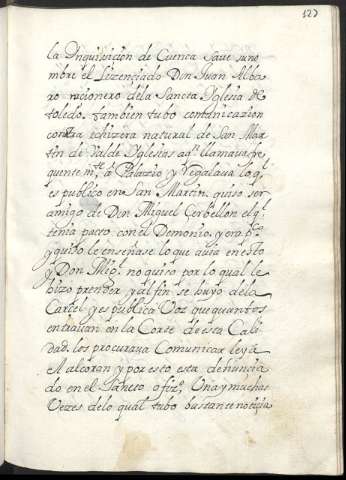 127
la Inquisicion de Cuenca save su no
mbre el Lizenciado Don Juan Alba
ro racionero dela Sancta Iglesia de
toledo. tambien tubo comunicazion
con otra echizera natural de San Mar
tin de Valde Iglesias aqn llamava fre
quentemte a Palazio y Regalava lo ql
es publico en San Martin, quiso ser
amigo de Don Miguel Cerbellon el q
tenia pacto con el Demonio, y era pco
y quiso le enseñase lo que avia en esto
y Don Migl no quiso por lo qual le
hizo prender y al fin se huyo dela
Carcel y es publica Voz que quantos
entravan en la Corte de esta Cali
dad, los procurava Comunicar leya
el alcoran y por esto esta denuncia
do en el Sancto ofizo Una y muchas
Vezes de lo qual tubo bastante noticia